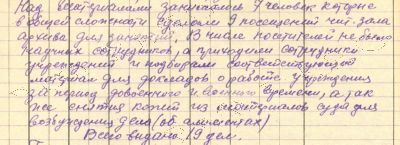 Над материалами занималось 7 человек которые
в общей сложности сделали 9 посещений чит. зала
архива для занятий. В числе посетителей не было
научных сотрудников, а приходили сотрудники
учреждений и подбирали соответствующий
материал для докладов о работе учреждения
за период довоенного и военного времени, а так
же снятия копий из материалов суда для
возбуждения дела (об алиментах)
Всего выдано 19 дел.